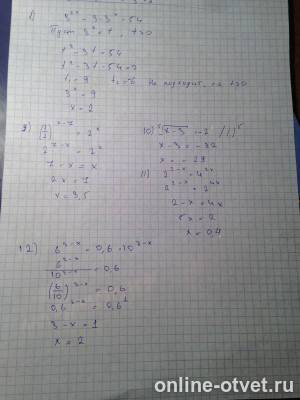 8) 3²ˣ - 3·3ˣ = 54
Пусть 3ˣ = t, t>0
t² - 3t = 54
t² - 3t - 54 = 0
t₁ = 9 t₂ = -6 не подходит, t>0
3ˣ = 9
x = 2
9) (1/2)ˣ⁻⁷ = 2ˣ
2⁷⁻ˣ = 2ˣ
7 - x = x
2x = 7
x = 3,5
10) ⁵√x-3 = -2 /()⁵
x - 3 = -32
x = -29
11) 2²⁻ˣ = 4²ˣ
2²⁻ˣ = 2⁴ˣ
2 - x = 4x
5x = 2
x = 0,4
12) 6³⁻ˣ = 0,6·10³⁻ˣ
6³⁻ˣ/10³⁻ˣ = 0,6
(6/10)³⁻ˣ = 0,6
0,6³⁻ˣ = 0,6¹
3 - x = 1
x = 2
online-otvet.ru